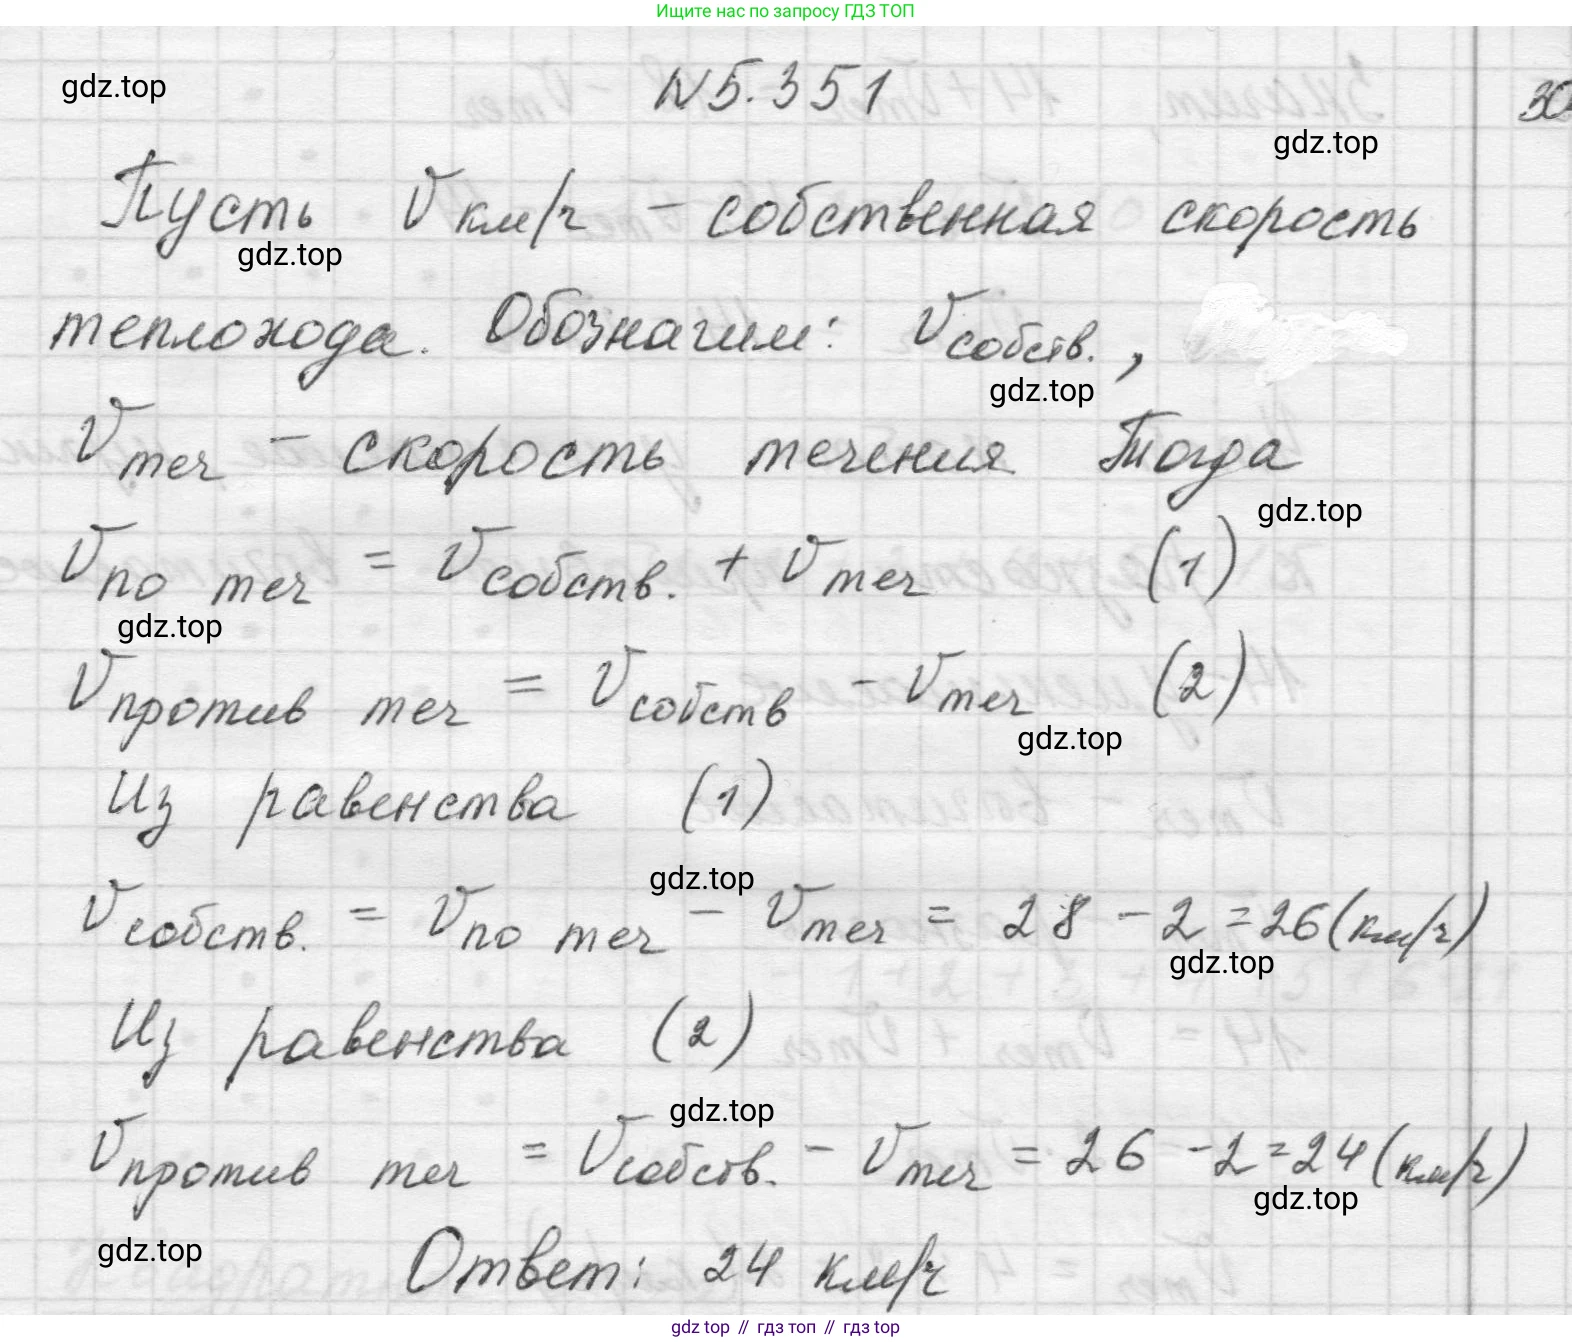 Ищите нас по запросу ГДЗ ТОП
gdz.top
N 5.351
30
gdz.top
Пусть V км/ч - собственная скорость
gdz.top
теплохода. Обозначим: V собств.,
gdz.top
V теч - скорость течения Тогда
gdz.top
V по теч = V собств. + V теч (1)
gdz.top
V против теч = V собств - V теч (2)
gdz.top
Из равенства (1)
gdz.top
V собств. = V по теч - V теч = 28 - 2 = 26 (км/ч)
gdz.top
Из равенства (2)
gdz.top
V против теч = V собств. - V теч = 26 - 2 = 24 (км/ч)
gdz.top
gdz.top
Ответ: 24 км/ч
gdz top // гдз топ // гдз top